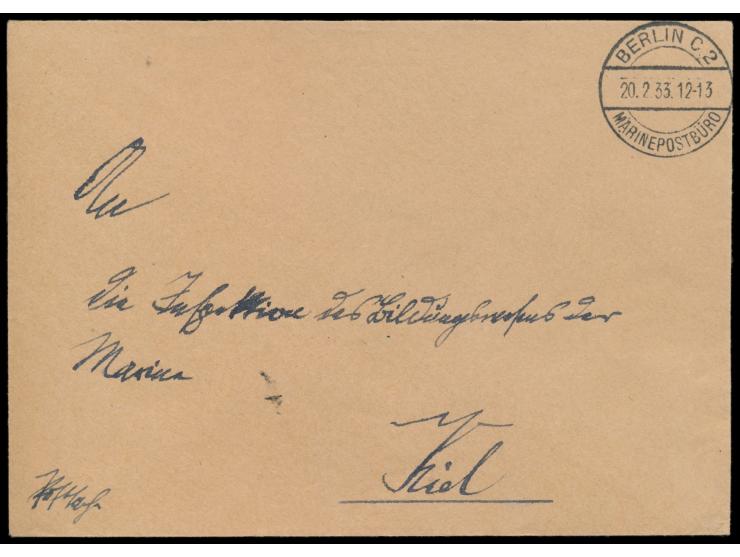 BERLIN C.2
20.2.33.12-13
MARINEPOSTBÜRO
An
die Inspektion des Bildungswesens der
Marine
Kiel
Postsache